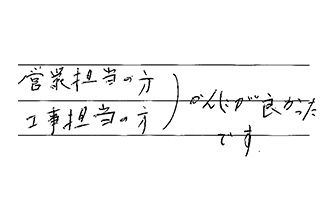 営業担当の方
工事担当の方
かんじが良かった
です.